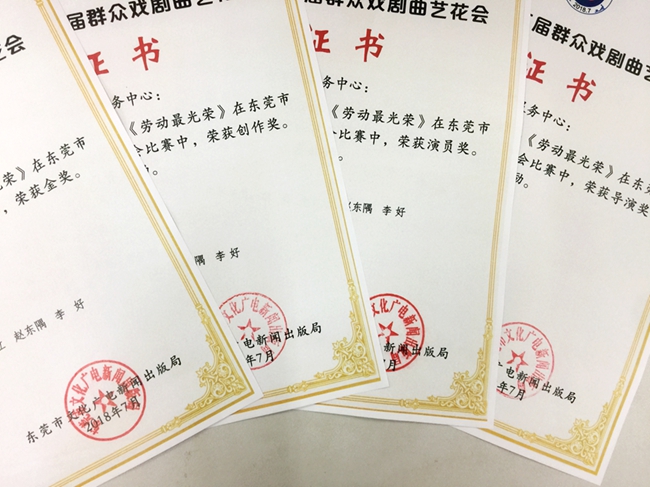 艺花会
荣》在东莞市
，荣获金奖。
赵东隅 李好
东莞市文化广电新闻出版局
2018年7月
届群众戏剧曲艺花会
证书
务中心：
《劳动最光荣》在东莞市
会比赛中，荣获创作奖。
隅 李好
广电新闻出版局
年7月
届群众戏剧曲艺花会
证书
务中心：
《劳动最光荣》在东莞市
会比赛中，荣获演员奖。
赵东隅 李好
电新闻出版局
年7月
2018.7
届群众戏剧曲艺
证书
中心：
《劳动最光荣》在东莞
会比赛中，荣获导演奖
动。
广电新闻出版局
年7月